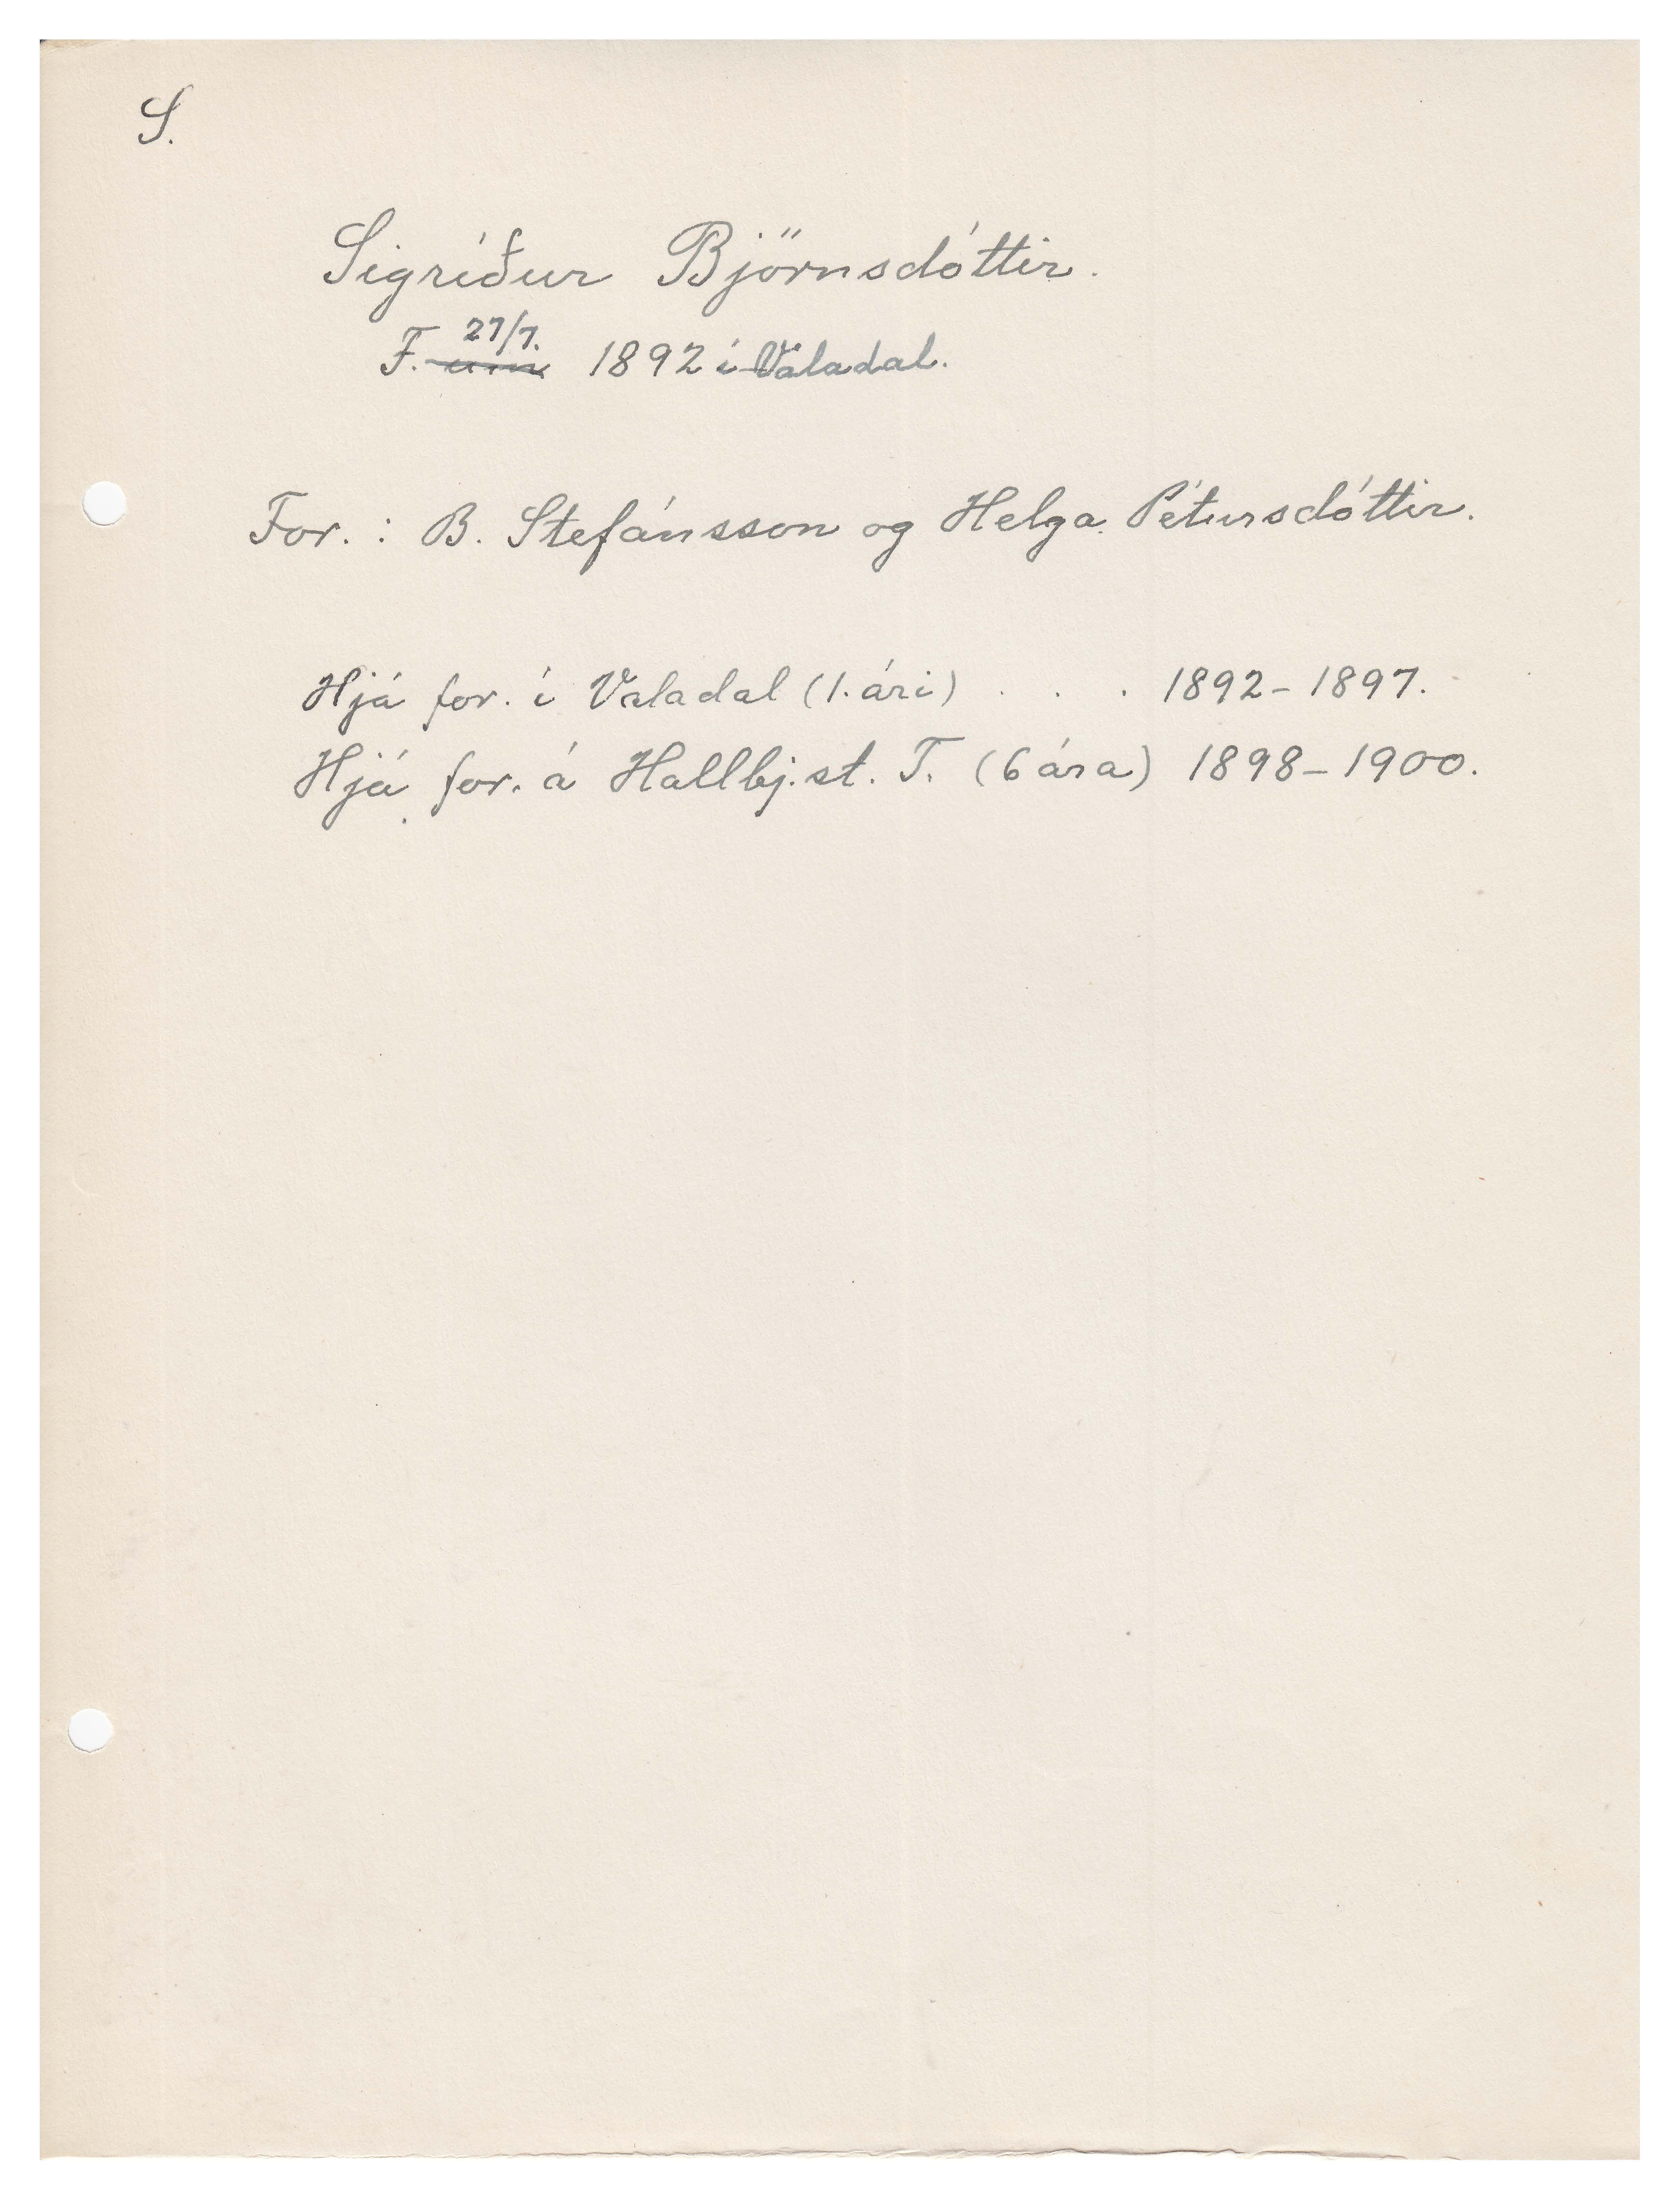 S.
Sigríður Björnsdóttir.
F. um 27/7. 1892 í Valadal.
For.: B. Stefánsson og Helga Pétursdóttir.
Hjá for. í Valadal (1. ári) . . . 1892-1897.
Hjá for. á Hallbj.st. T. (6 ára) 1898-1900.